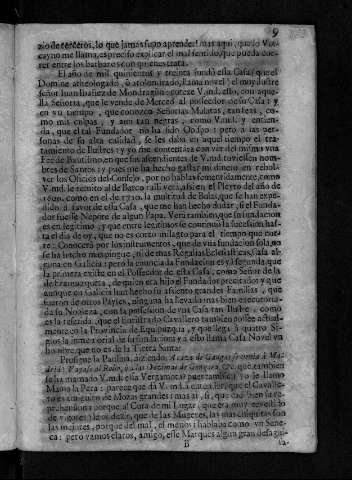 9
zio de terceros, lo que jamas supo aprender! mas aqui, que do Viz-
cayno me llama, es preciso explicar el mal sentido, que puede cor-
rer entre los barbaros con quienes trata.
El año de mil quinientos y treinta fundò esta Casa, que el
Domine atheologado, ò atolondrado, llama novel! el muy ilustre
señor Juan Ibañez de Mondragòn: coteje V.md. esto, con aque-
lla Señoria, que le vende de Merced al possedor de su Casa: y
en su tiempo, que conozco Señorias Mulatas, tan feas, como
mis culpas, y aun tan negras, como V.md. y entien-
da, que el tal Fundador no ha sido Obispo: pero à las per-
sonas de su alta calidad, se les daba en aquel tiempo el tra-
tamiento de Ilustres; y yo me contentàra con vèr del mismo una
Fee de Bautismo, en que sus ascendientes de V.md. tuviessen nom-
bres de Santos: y pues me ha hecho gastar mi dinero en rebol-
ver los Oficios del Consejo, por no hablar fomentidamente, como
V.md. le remito al de Barco
1600. como en el de 1710. la multitud de Bulas, que se han expe-
dido à favor de esta Casa, que me han hecho dudar, si el Funda-
dor fuesse Nepote de algun Papa. Verà tambien, que su fundacion
es en legitimo, y que entre legitimos se continuò la succession has-
ta el dia de oy, que no es corto milagro para el tiempo que cor-
re: Conocerà por los instrumentos, que de una fundacion sola, no
se ha hecho mas pingue, ni de mas Regalias Eclesiasticas, Casa al-
guna en Galicia: pero la enuncia la Fundacion es ya segunda, que
la primera existe en el Possedor de esta Casa, como Señor de la
de de quien era hijo el Fundador precitado: y que
aunque en Galicia han hecho su assiento grandes Familias, que
fueron de otros Payses, ninguna ha llevado mas bien executoria-
da su Nobleza, con la possession de una Casa tan Ilustre, como
es la referida, que el Ilustrado Cavallero tambien possee actual-
mente en la Provincia de Guipuzqua, y que llega à quatro Si-
glos la memorial de su fundacion: y à esto llama Casa Novel un
hombre, que no es de la Tierra Santa.
Prosigue la Paulina, diziendo: Acaso de Gangas se venia à Ma-
drid: Pagase el Robo, ò las Dezimas de Gongora, &c. que tambien
se ha tramado V.md. esta Vergamota? pues tambien yo le llamo
Mama la Pera: parece que dà V.md. à entender, que el Cavalle-
ro es amigo de Mozas grandes: mas ai, si, que está bien la re-
prehension porque al Cura de mi Lugar, que era muy revestido
de vigotes, le oì dezir, que de las Mugeres, las mas chiquitas son
las mejores, porque del mal, el menos: hablaba como un Sene-
ca: pero vamos claros, amigo, esse Marques algun gran desagui-
B
sa-